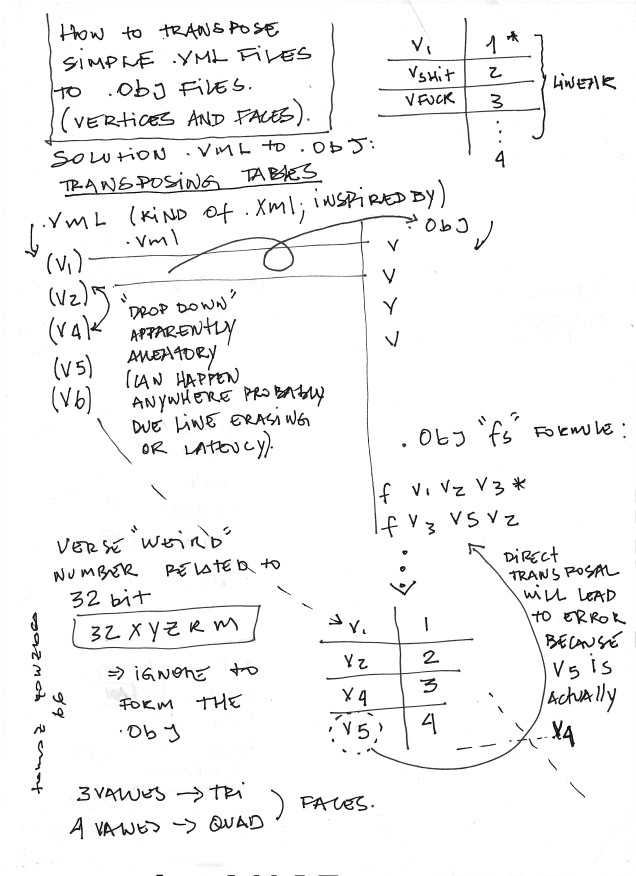 HOW TO TRANSPOSE
SIMPLE .VML FILES
TO .ObJ FILES.
(VERTICES AND FACES).
V1 1*
VSHIT 2
VFUCK 3
4
LINEAR
SOLUTION .VML TO .ObJ:
TRANSPOSING TABLES
.VML (KIND OF .Xml; iNSPIRED BY)
.vml
.ObJ
(V1)
(V2)
(V4)
(V5)
(V6)
V
V
V
V
"DROP DOWN"
APPARENTLY
ALEATORY
(CAN HAPPEN
ANYWHERE PROBABLY
DUE LINE ERASING
OR LATENCY).
.ObJ "fs" FORMULE:
f V1 V2 V3 *
f V3 V5 V2
VERSE "WEIRD"
NUMBER RELATED TO
32 bit
32 X Y Z R M
⇒ iGNORE TO
FORM THE
.ObJ
V1 1
V2 2
V4 3
V5 4
DIRECT
TRANSPOSAL
WILL LEAD
TO ERROR
BECAUSE
V5 iS
ACTUALLY
V4
3 VALUES → TRi
4 VALUES → QUAD
FACES.